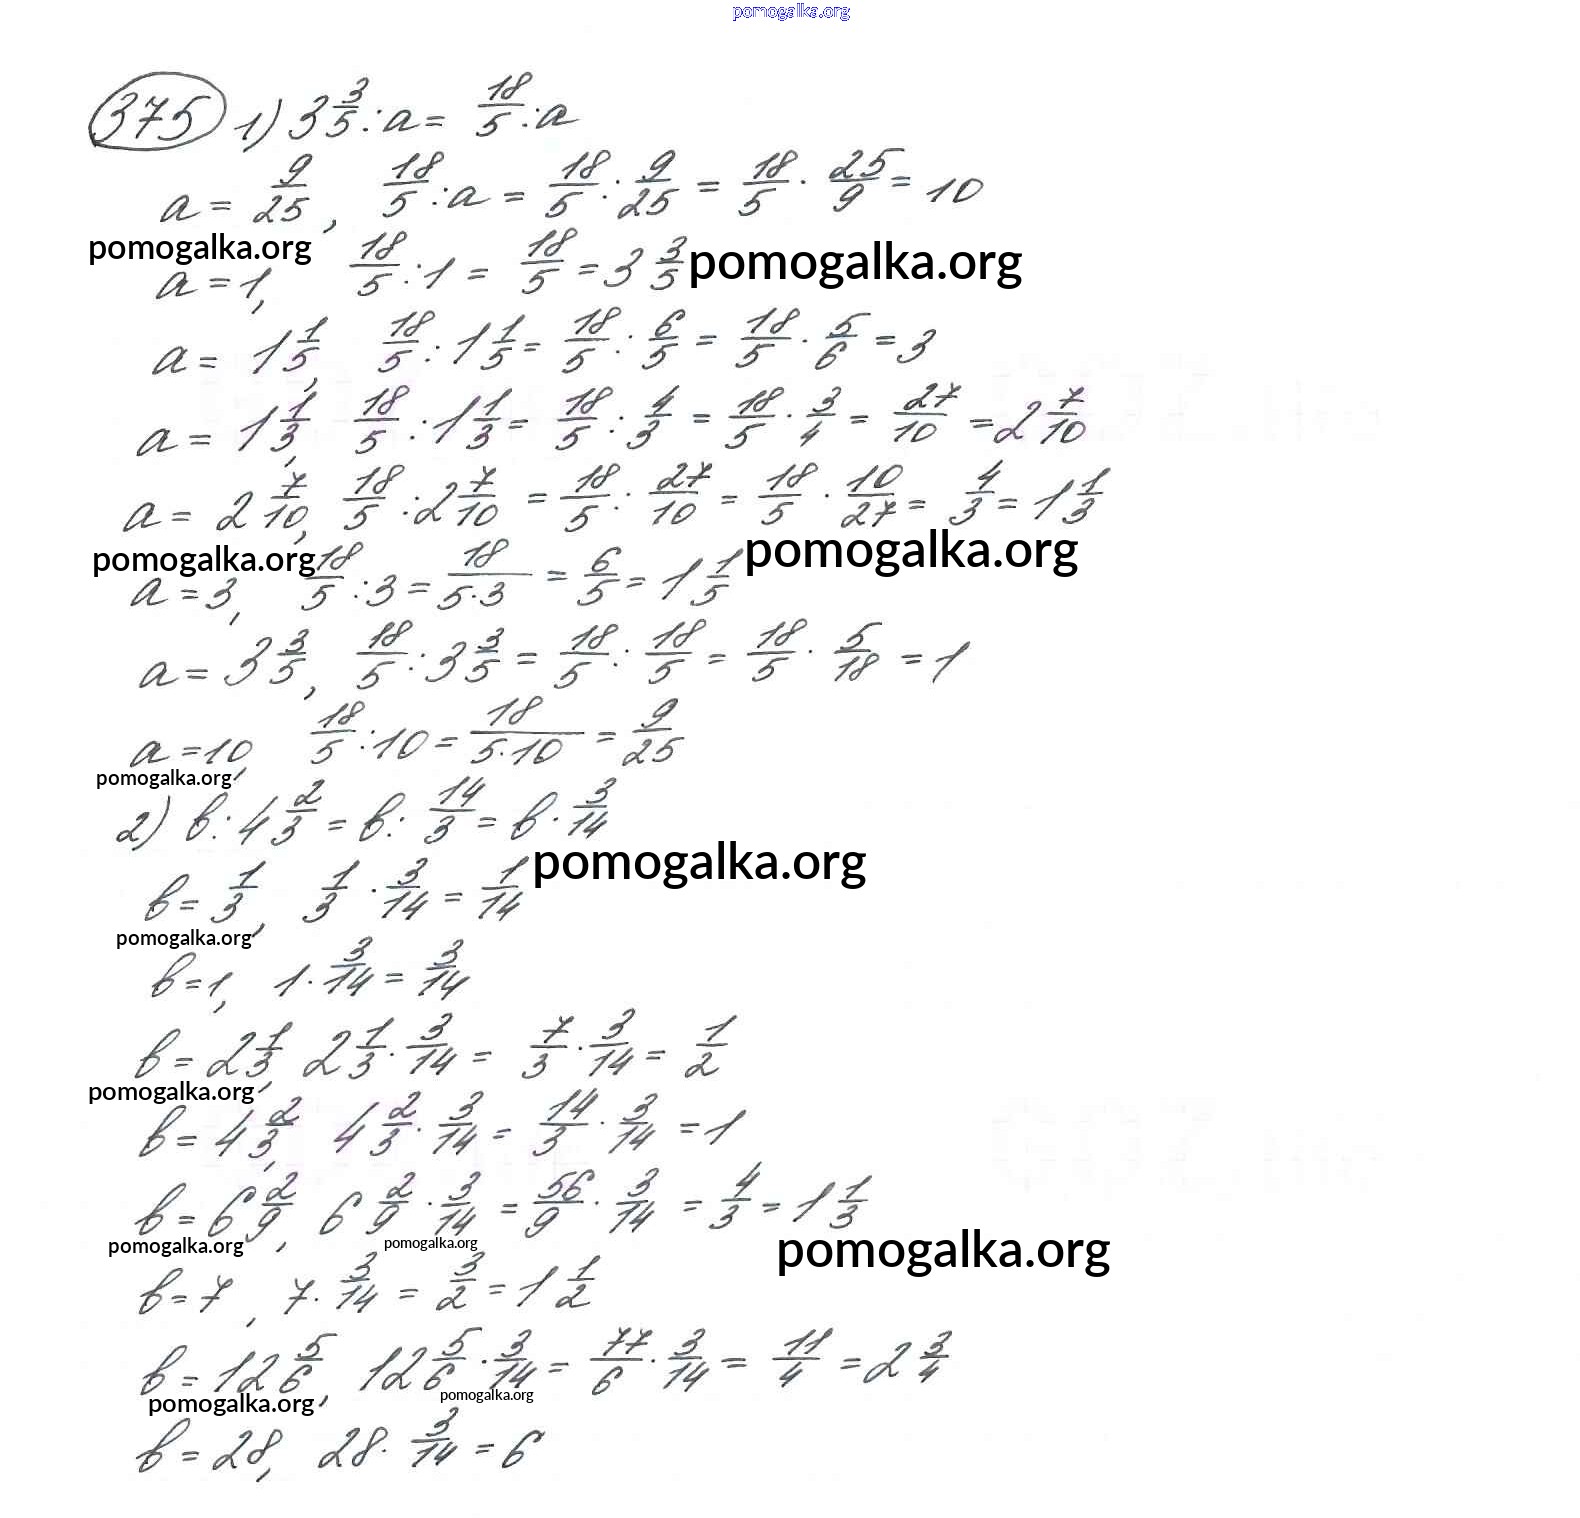 pomogalka.org
375 1) 3 3/5 : a = 18/5 : a
a = 9/25, 18/5 : a = 18/5 : 9/25 = 18/5 · 25/9 = 10
pomogalka.org
a = 1, 18/5 : 1 = 18/5 = 3 3/5 pomogalka.org
a = 1 1/5, 18/5 : 1 1/5 = 18/5 : 6/5 = 18/5 · 5/6 = 3
a = 1 1/3, 18/5 : 1 1/3 = 18/5 : 4/3 = 18/5 · 3/4 = 27/10 = 2 7/10
a = 2 7/10, 18/5 : 2 7/10 = 18/5 : 27/10 = 18/5 · 10/27 = 4/3 = 1 1/3
pomogalka.org pomogalka.org
a = 3, 18/5 : 3 = 18/(5·3) = 6/5 = 1 1/5
a = 3 3/5, 18/5 : 3 3/5 = 18/5 : 18/5 = 18/5 · 5/18 = 1
a = 10, 18/5 : 10 = 18/(5·10) = 9/25
pomogalka.org
2) b : 4 2/3 = b : 14/3 = b · 3/14
pomogalka.org
b = 1/3, 1/3 · 3/14 = 1/14
pomogalka.org
b = 1, 1 · 3/14 = 3/14
b = 2 1/3, 2 1/3 · 3/14 = 7/3 · 3/14 = 1/2
pomogalka.org
b = 4 2/3, 4 2/3 · 3/14 = 14/3 · 3/14 = 1
b = 6 2/9, 6 2/9 · 3/14 = 56/9 · 3/14 = 4/3 = 1 1/3
pomogalka.org pomogalka.org pomogalka.org
b = 7, 7 · 3/14 = 3/2 = 1 1/2
b = 12 5/6, 12 5/6 · 3/14 = 77/6 · 3/14 = 11/4 = 2 3/4
pomogalka.org pomogalka.org
b = 28, 28 · 3/14 = 6